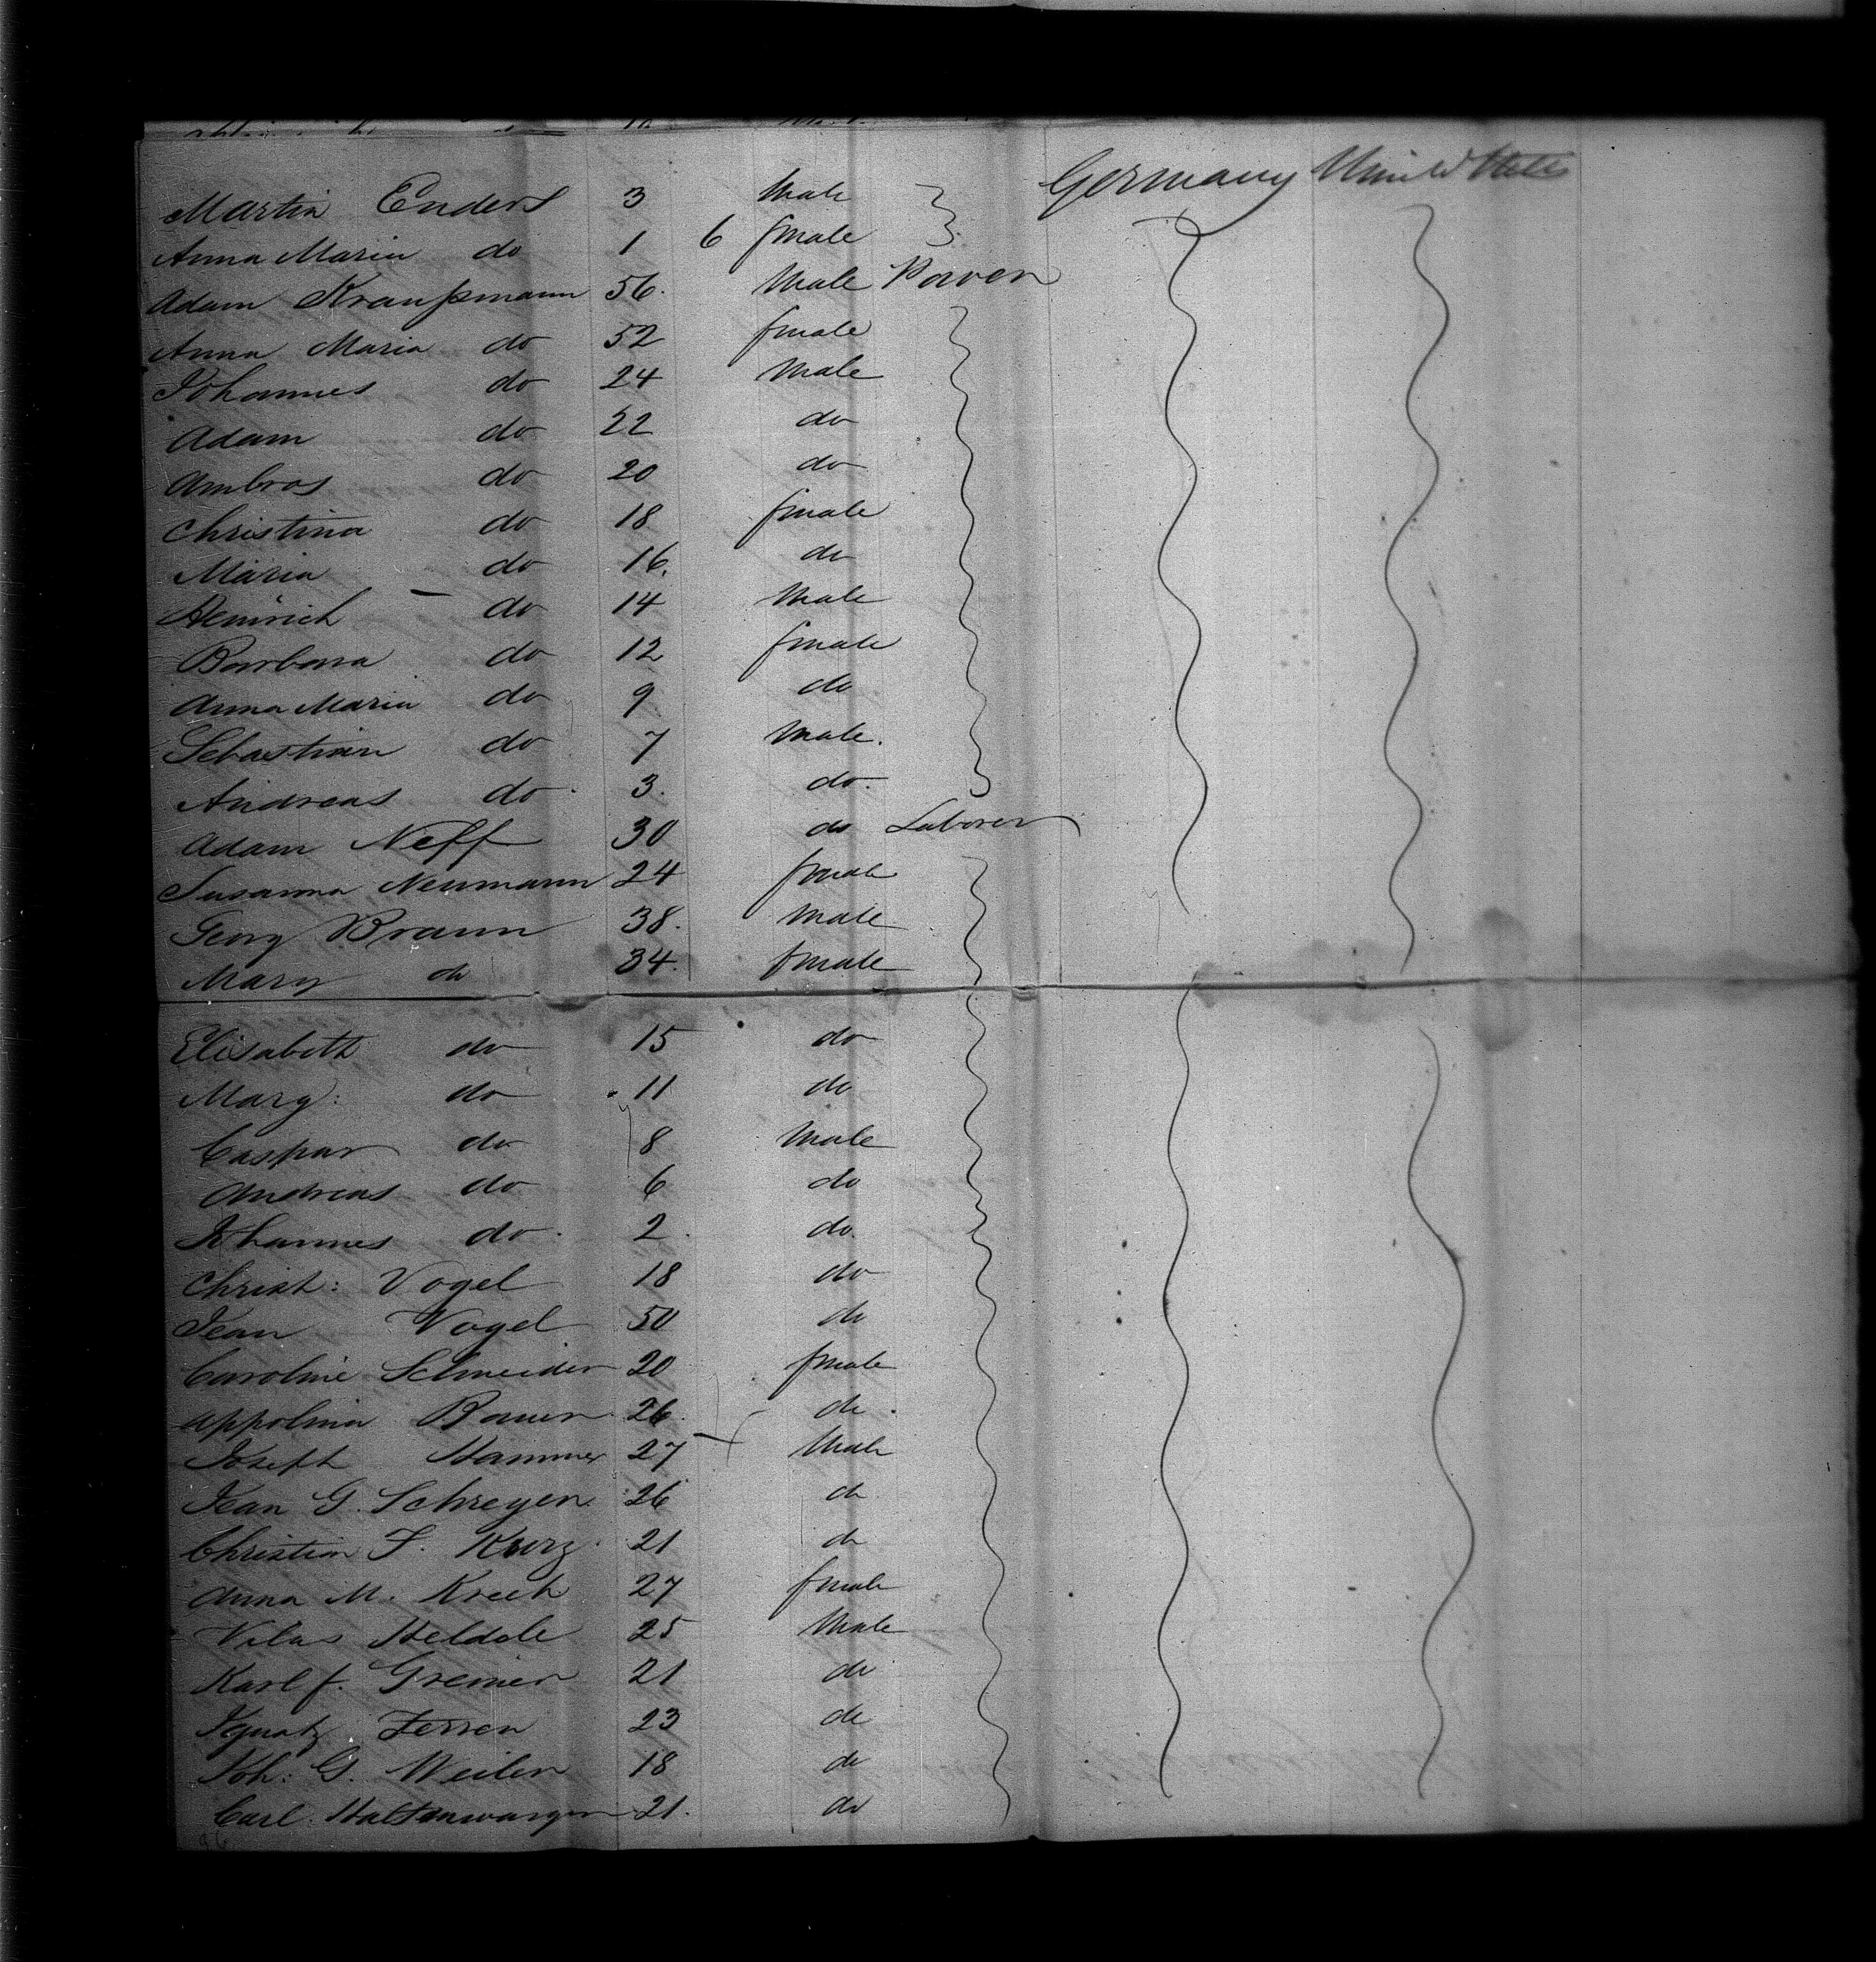 Martin Enders 3 Male Germany United States
Anna Maria do 1 6 fmale
Adam Kraußmann 56. Male Paver
Anna Maria do 52 fmale
Johannes do 24 Male
Adam do 22 do
Ambros do 20 do
Christina do 18 fmale
Maria do 16. do
Heinrich do 14 Male
Barbara do 12 fmale
Anna Maria do 9 do
Sebastian do 7 Male.
Andreas do 3. do.
Adam Neff 30 do Laborer
Susanna Neumann 24 fmale
Georg Braun 38. Male
Mary do 34. fmale
Elisabeth do 15 do
Marg: do 11 do
Caspar do 8 Male
Andreas do 6 do
Johannes do. 2. do.
Christ: Vogel 18 do
Jean Vogel 50 do
Caroline Schneider 20 fmale
Appolina Bauer 26. do.
Joseph Hammer 27 Male
Jean G. Schreyer. 26 do
Christian F. Kurz. 21 do
Anna M. Krech 27 fmale
Heldele 25 Male
Karl f. Greiner 21 do
Ignatz 23 do
Joh: G. Weiler 18 do
Carl 21. do